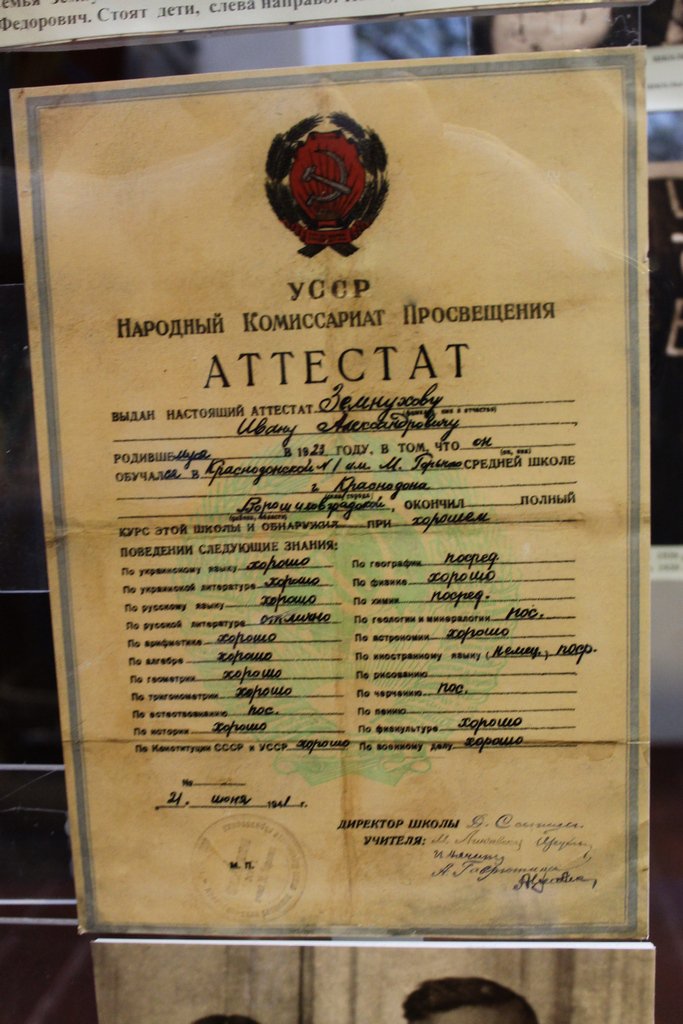 Федорович. Стоят дети, слева направо:
УССР
НАРОДНЫЙ КОМИССАРИАТ ПРОСВЕЩЕНИЯ
АТТЕСТАТ
ВЫДАН НАСТОЯЩИЙ АТТЕСТАТ Земнухову
(фамилия, имя и отчество)
Ивану Александровичу
РОДИВШЕмуся В 1923 ГОДУ, В ТОМ, ЧТО он
(он, она)
ОБУЧАЛся В Краснодонской №1 им. М. Горького СРЕДНЕЙ ШКОЛЕ
г. Краснодона
(села, города)
Ворошиловградской, ОКОНЧИЛ ПОЛНЫЙ
(района, области)
КУРС ЭТОЙ ШКОЛЫ И ОБНАРУЖИЛ ПРИ хорошем
ПОВЕДЕНИИ СЛЕДУЮЩИЕ ЗНАНИЯ:
По украинскому языку хорошо
По украинской литературе хорошо
По русскому языку хорошо
По русской литературе отлично
По арифметике хорошо
По алгебре хорошо
По геометрии хорошо
По тригонометрии хорошо
По естествознанию пос.
По истории хорошо
По Конституции СССР и УССР хорошо
По географии посред.
По физике хорошо
По химии посред.
По геологии и минералогии пос.
По астрономии хорошо
По иностранному языку (немец.) поср.
По рисованию
По черчению пос.
По пению
По физкультуре хорошо
По военному делу хорошо
№
21. июня 1941 г.
М. П.
ДИРЕКТОР ШКОЛЫ
УЧИТЕЛЯ: